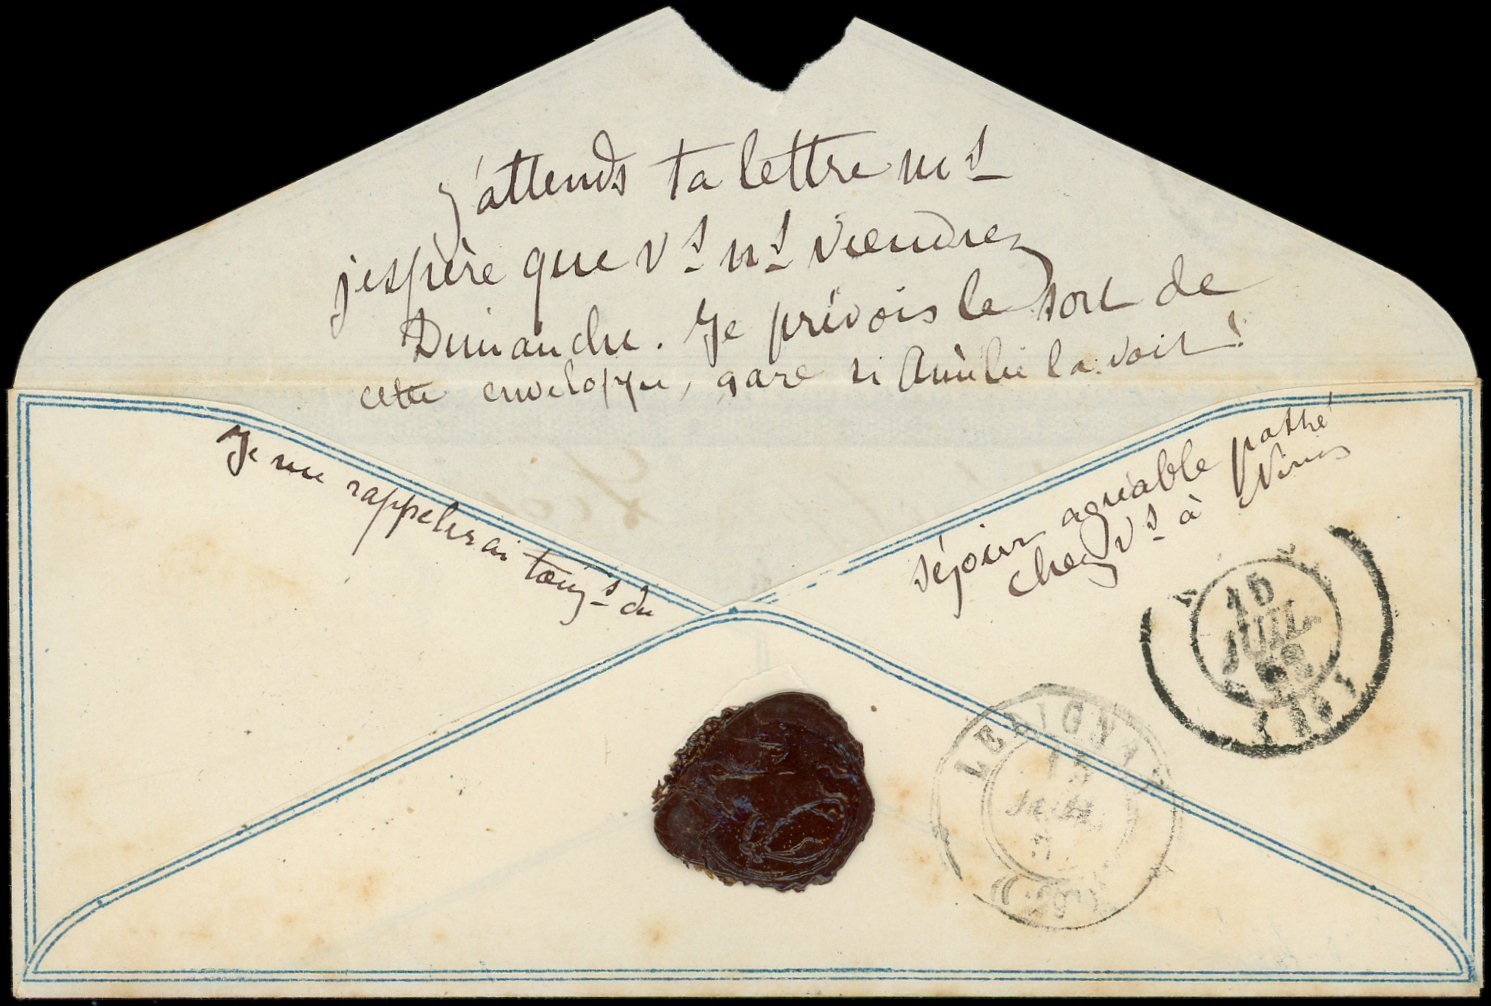 j'attends ta lettre ms
j'espère que vs ns viendrez
Dimanche. Je prévois le sort de
cette enveloppe, gare si Amélie la voit !
Je me rappelerai toujs du
séjour agréable passé
chez vs à Nîmes
10
JUIL
LEDIGNAN
15
JUIL